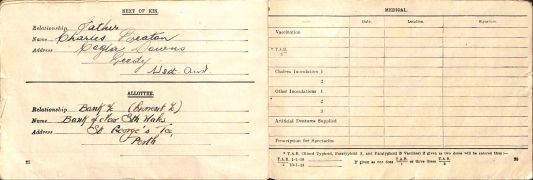 NEXT OF KIN.
Relationship Father
Name Charles Heaton
Address Downs
West Aust.
ALLOTTEE.
Relationship Bank
Name Bank of New Sth Wales
Address St George's Tce,
Perth
22
MEDICAL.
— Date. Location. Signature.
Vaccination
* T.A.B.
Cholera Inoculation 1
2
Other Inoculations 1
2
3
Artificial Dentures Supplied
Prescription for Spectacles
* T.A.B. (Mixed Typhoid, Paratyphoid A and Paratyphoid B Vaccine) if given as two doses will be entered thus:—
T.A.B. 1-1-39
2 10-1-39
If given as one dose T.A.B. 1 or three doses T.A.B. 3
23